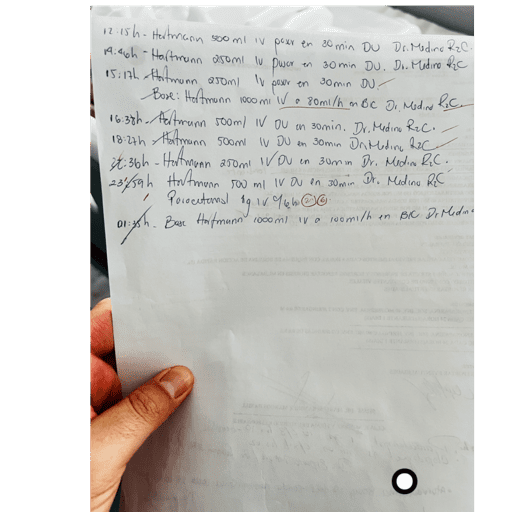 12:15h - Hartmann 500ml IV pasar en 30min DU Dr. Medina R2C.
14:46h - Hartmann 250ml IV pasar en 30min DU. Dr. Medina R2C
15:17h Hartmann 250ml IV pasar en 30min DU
Base: Hartmann 1000ml IV a 80ml/h en BIC Dr. Medina R2C.
16:38h Hartmann 500ml IV DU en 30min. Dr. Medina R2C.
18:27h - Hartmann 500ml IV DU en 30min Dr. Medina R2C
:36h - Hartmann 250ml IV DU en 30min Dr. Medina R2C.
23:59h Hartmann 500ml IV DU en 30min Dr. Medina R2C
Paracetamol 1g IV
01: h. Base Hartmann 1000ml IV a 100ml/h en BIC Dr Medina